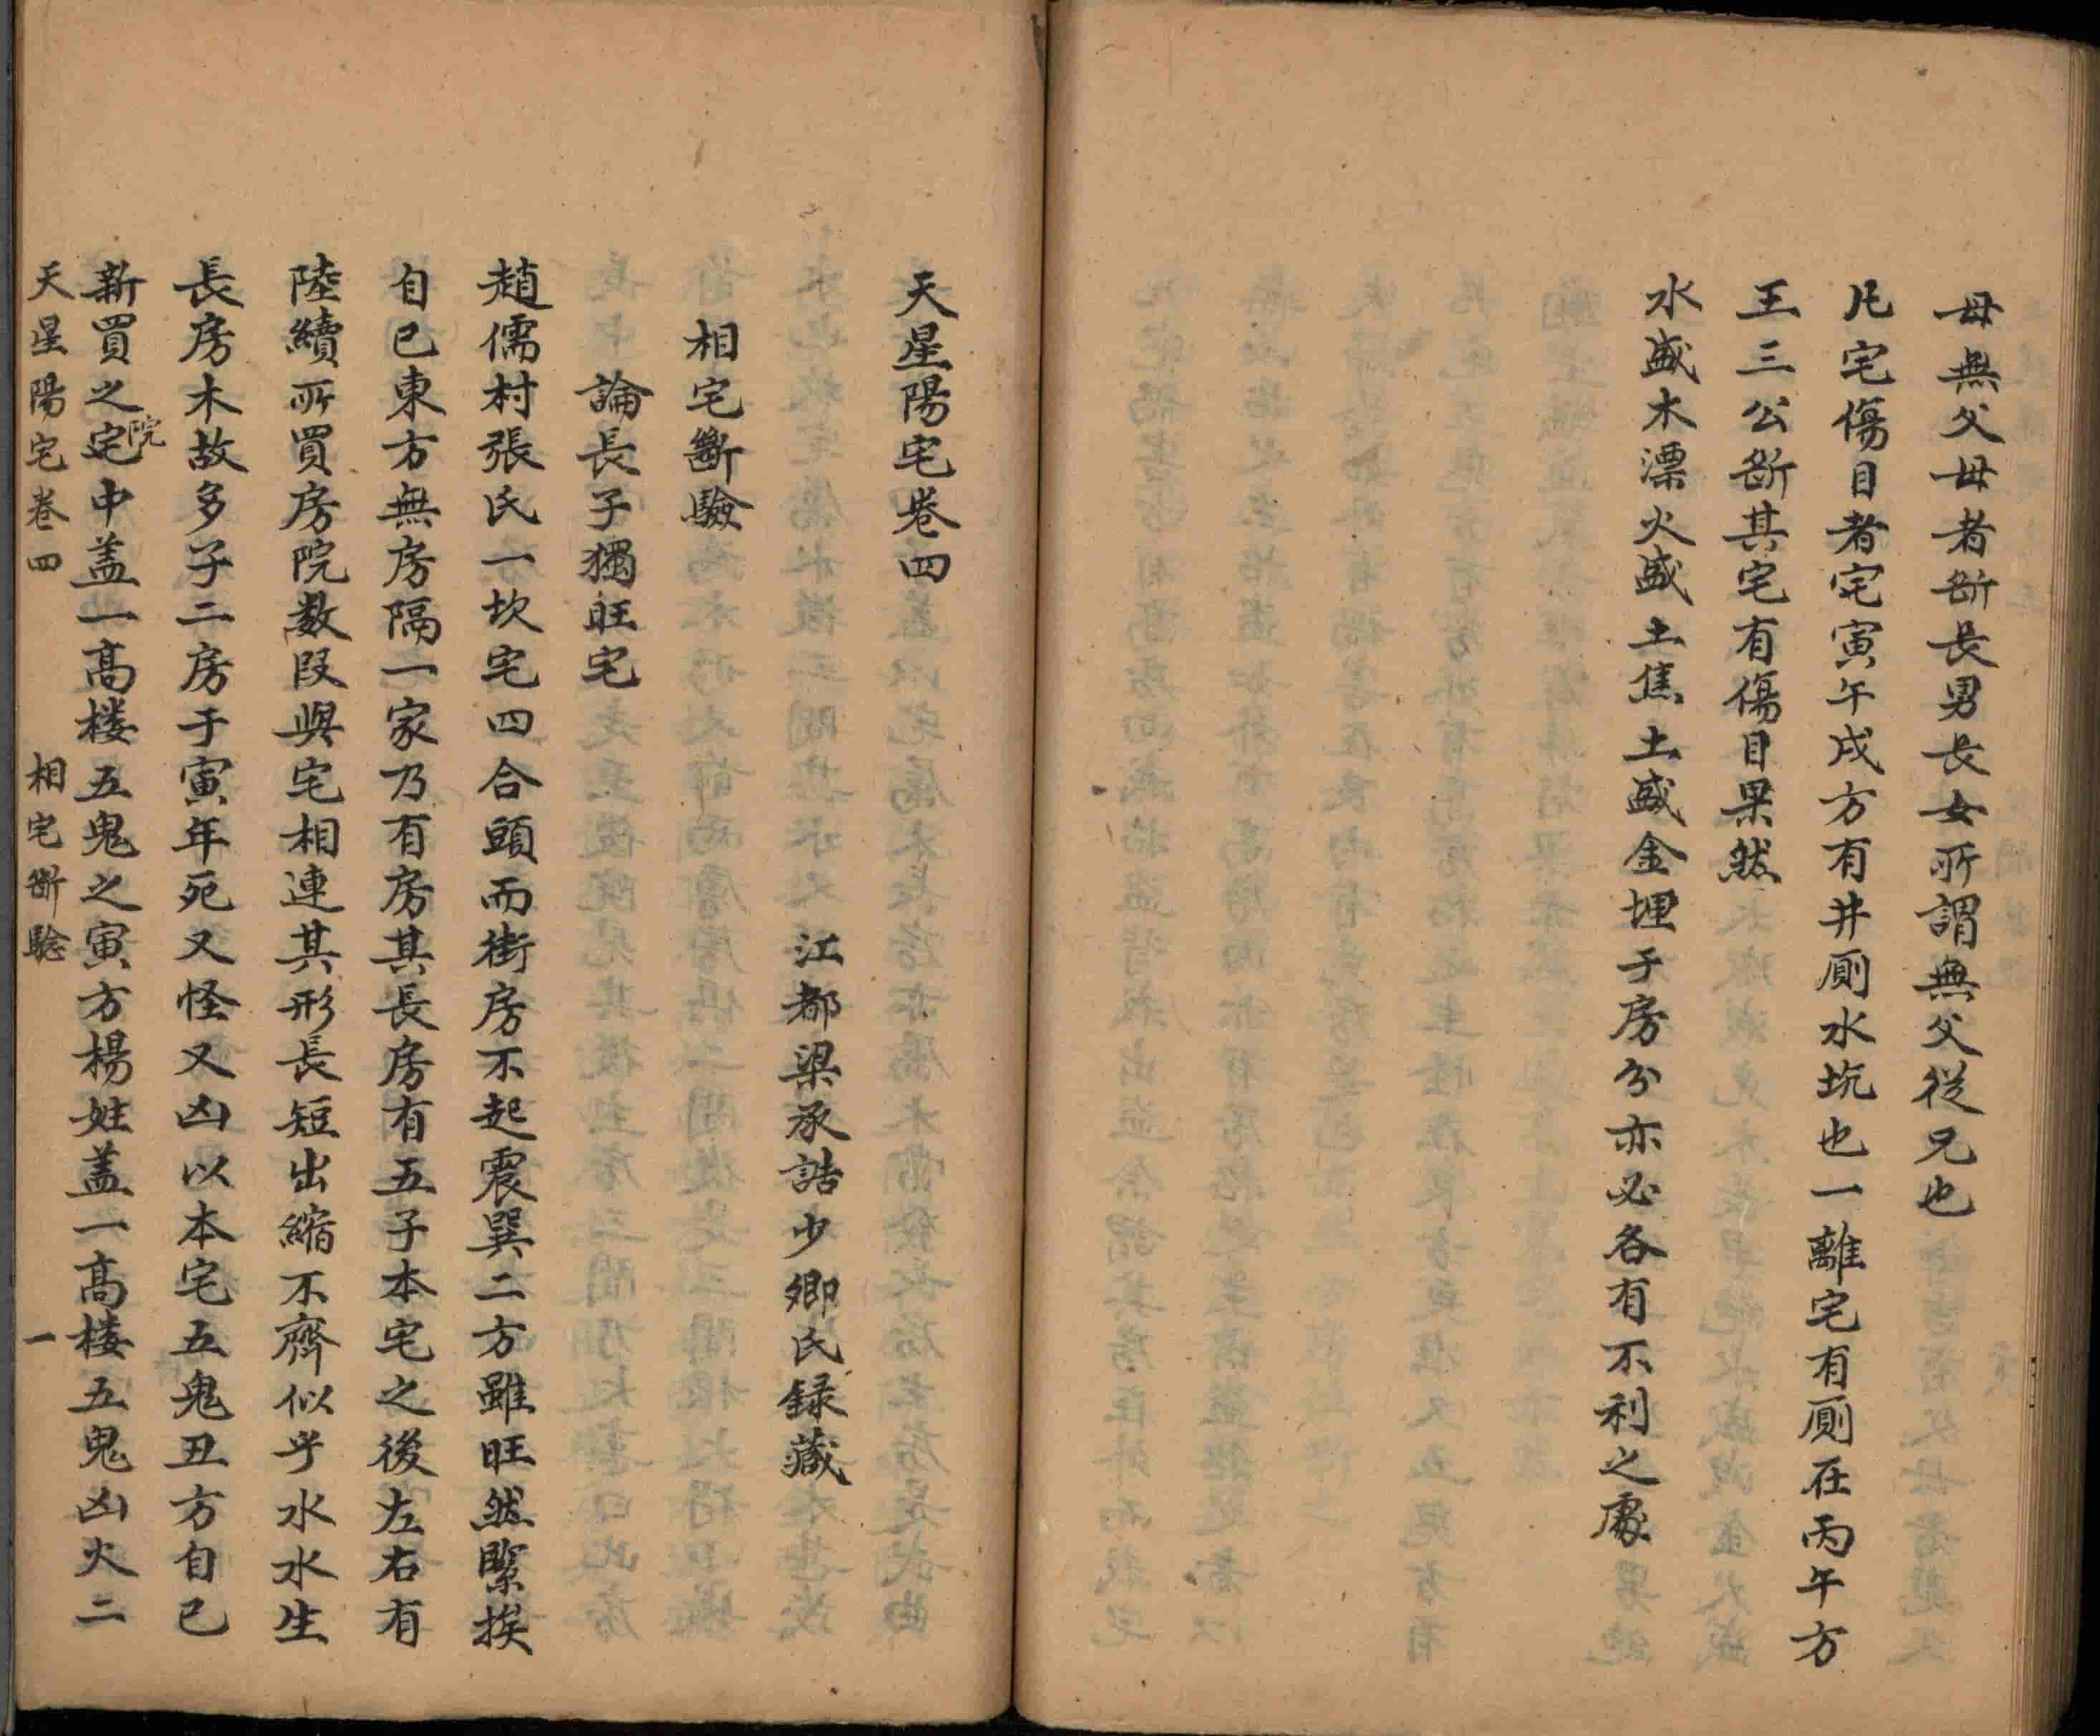 母無父母者斷長男長女所謂無父從兄也
凡宅傷目者宅寅午戌方有井厠水坑也一離宅有厠在丙午方
王三公斷其宅有傷目果然
水盛木漂火盛土焦土盛金埋于房分亦必各有不利之處
天星陽宅卷四
江都梁承誥少卿氏録藏
相宅斷驗
論長子獨旺宅
趙儒村張氏一坎宅四合頭而街房不起震巽二方雖旺然緊挨
自己東方無房隔一家乃有房其長房有五子本宅之後左右有
陸續所買房院数段與宅相連其形長短出縮不齊似乎水水生
長房木故多子二房于寅年死又怪又凶以本宅五鬼丑方自己
新買之宅院中盖一高楼五鬼之寅方楊姓盖一高楼五鬼凶火二
天星陽宅卷四 相宅斷驗 一